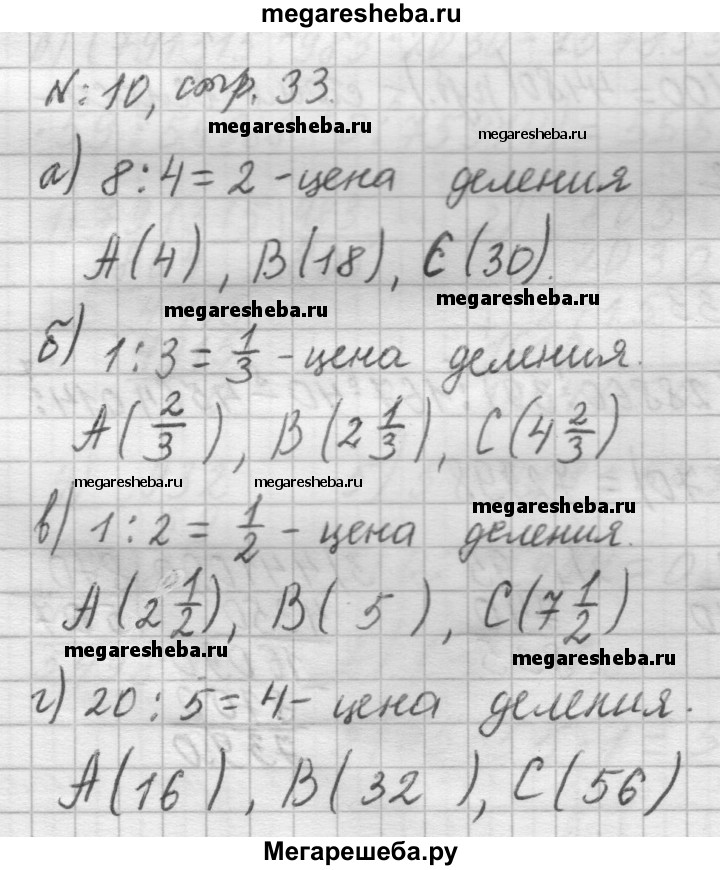 megaresheba.ru
№ 10, стр. 33.
megaresheba.ru
megaresheba.ru
а) 8 : 4 = 2 - цена деления
А(4), В(18), С(30).
megaresheba.ru
megaresheba.ru
б) 1 : 3 = 1/3 - цена деления.
А(2/3), В(2 1/3), С(4 2/3)
megaresheba.ru
megaresheba.ru
megaresheba.ru
в) 1 : 2 = 1/2 - цена деления.
А(2 1/2), В(5), С(7 1/2)
megaresheba.ru
megaresheba.ru
г) 20 : 5 = 4 - цена деления.
А(16), В(32), С(56)
Мегарешеба.ру